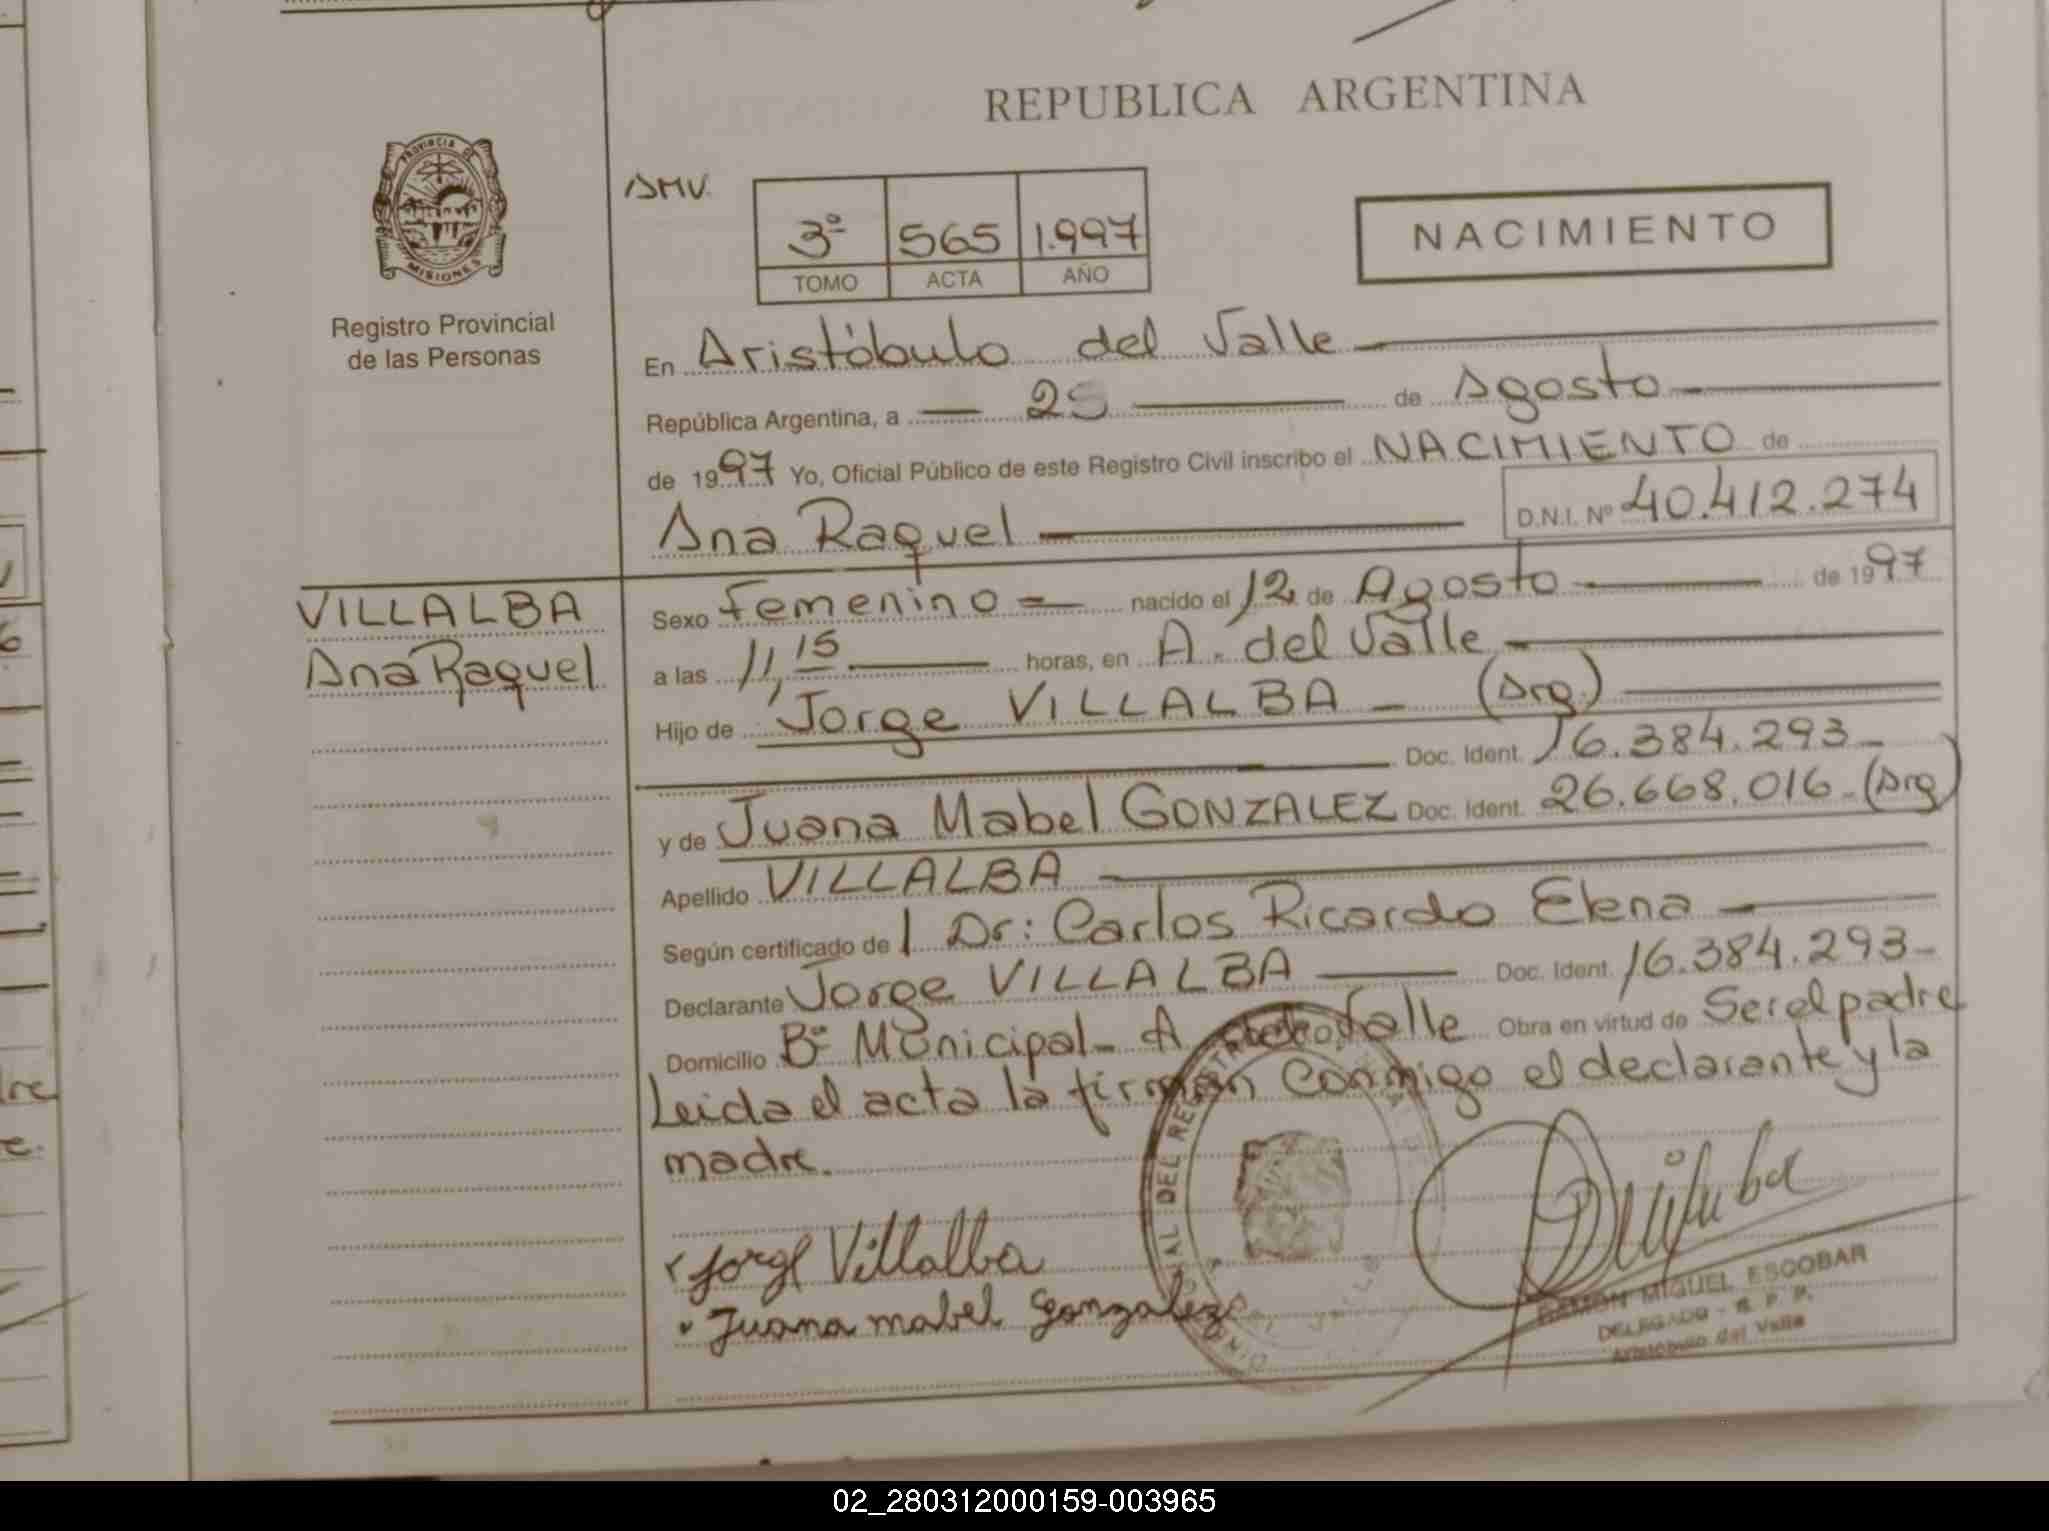 REPUBLICA ARGENTINA
PROVINCIA DE
MISIONES
Registro Provincial
de las Personas
AMV.
3º 565 1.997
TOMO ACTA AÑO
NACIMIENTO
En Aristóbulo del Valle
República Argentina, a 25 de Agosto
de 1997 Yo, Oficial Público de este Registro Civil inscribo el NACIMIENTO de
Ana Raquel D.N.I. Nº 40.412.274
VILLALBA
Ana Raquel
Sexo Femenino nacido el 12 de Agosto de 1997
a las 11,15 horas, en A. del Valle
Hijo de Jorge VILLALBA - (Arg.)
Doc. Ident. 16.384.293-
y de Juana Mabel GONZALEZ Doc. Ident. 26.668.016-(Arg)
Apellido VILLALBA
Según certificado de 1 Dr: Carlos Ricardo Elena
Declarante Jorge VILLALBA Doc. Ident. 16.384.293-
Domicilio Bº Municipal- A del Valle Obra en virtud de Ser el padre
Leida el acta la firman conmigo el declarante y la
madre.
Jorge Villalba
Juana mabel Gonzalez
DEL
RAMON MIGUEL ESCOBAR
DELEGADO - R. P. P.
Aristóbulo del Valle
02_280312000159-003965